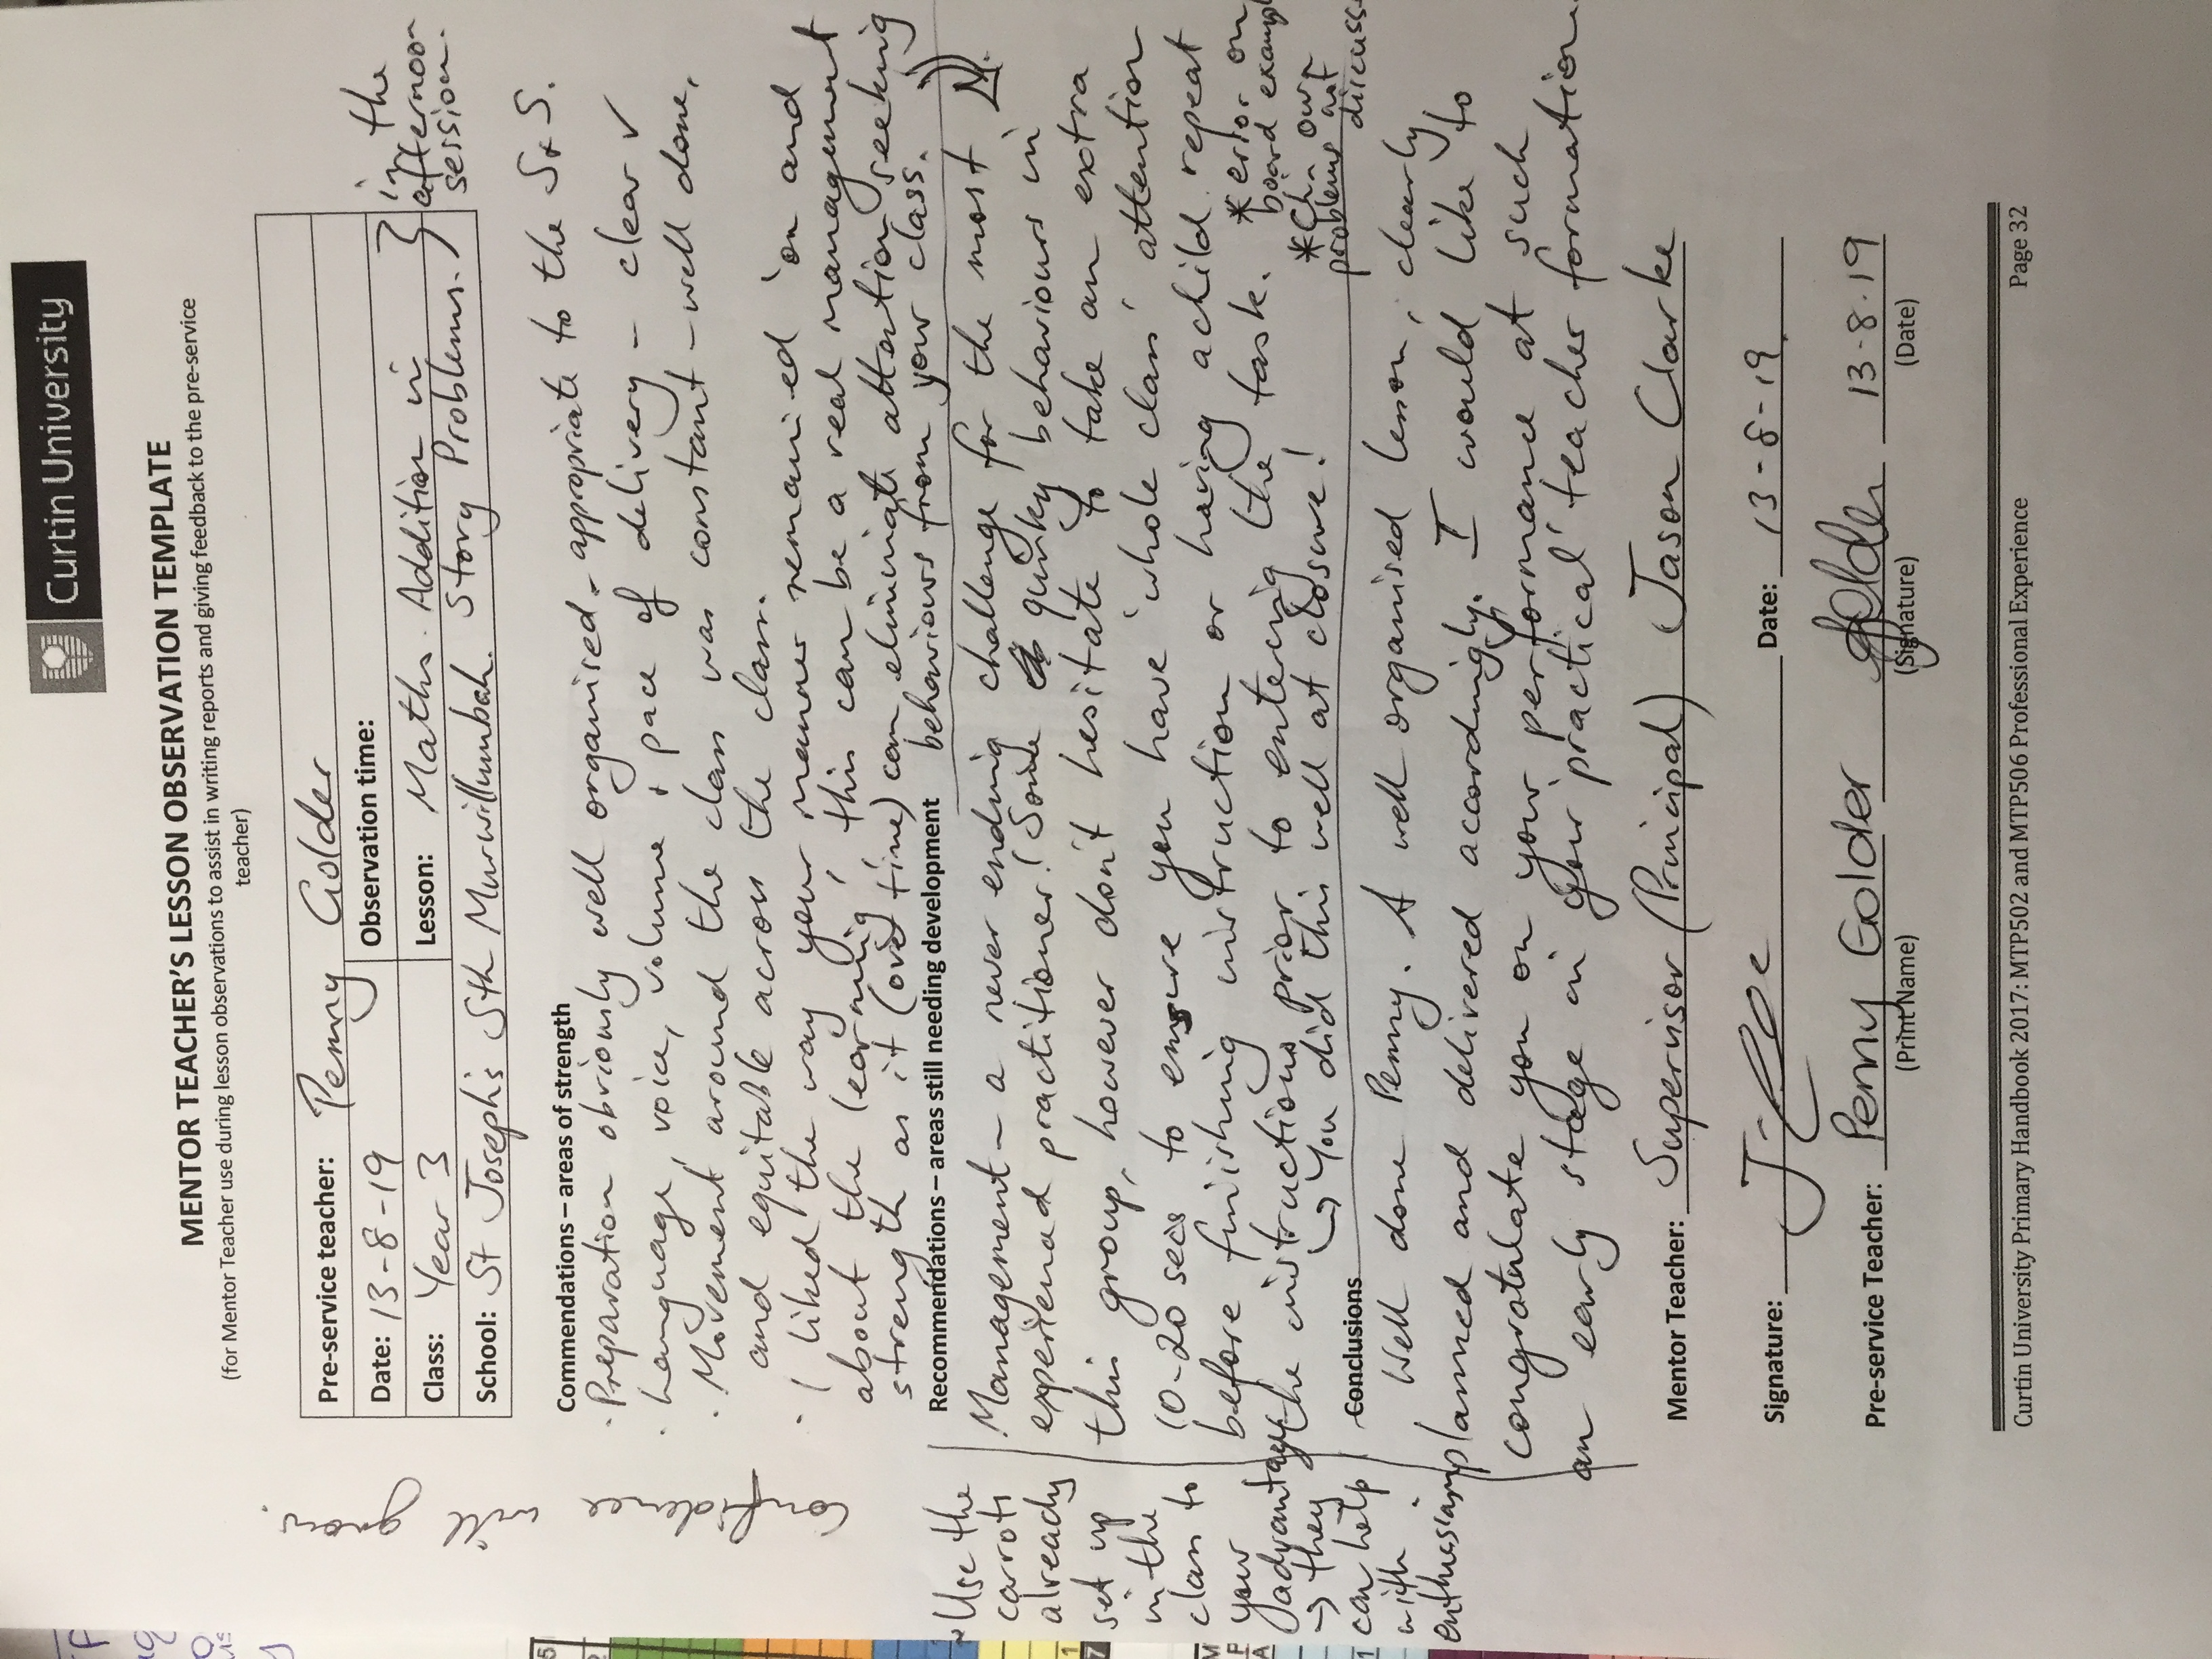 Curtin University
MENTOR TEACHER'S LESSON OBSERVATION TEMPLATE
(for Mentor Teacher use during lesson observations to assist in writing reports and giving feedback to the pre-service
teacher)
Pre-service teacher: Penny Golder
Date: 13-8-19 Observation time: } in the
Class: Year 3 Lesson: Maths. Addition in afternoon
School: St Joseph's Sth Murwillumbah. Story Problems. session.
Commendations – areas of strength
· Preparation obviously well organised - appropriate to the Sts.
· Language, voice, volume + pace of delivery - clear ✓
· Movement around the class was constant - well done,
and equitable across the class.
· I liked the way your manner remained 'on and
about the learning', this can be a real management
strength as it (over time) can eliminate attention seeking
behaviours from your class.
Recommendations – areas still needing development
Management - a never ending challenge for the most
experienced practitioner! Some quirky behaviours in
this group, however don't hesitate to take an extra
10-20 secs to ensure you have 'whole class' attention
before finishing instruction or having a child repeat
the instructions prior to entering the task.
↳ You did this well at closure!
* error on
board example
* Chn own
problems not
discuss
~ Use the
carrots
already
set up
in the
class to
your
advantage
→ they
can help
with
enthusiasm
Confidence
will
grow.
Conclusions
Well done Penny. A well organised lesson, clearly
planned and delivered accordingly. I would like to
congratulate you on your performance at such
an early stage in your 'practical' teacher formation.
Mentor Teacher: Supervisor (Principal) Jason Clarke
Signature: Date: 13-8-19
Pre-service Teacher: Penny Golder 13-8-19
(Print Name) (Signature) (Date)
Curtin University Primary Handbook 2017: MTP502 and MTP506 Professional Experience Page 32